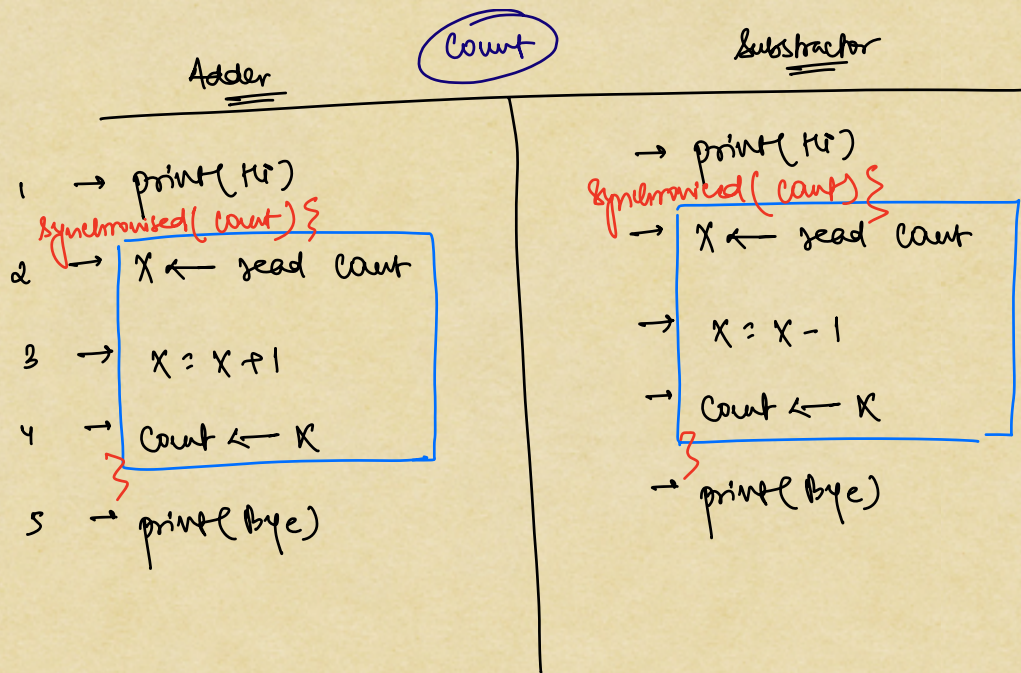 Count
Adder
Substractor
1 → print(Hi)
synchronised(count){
2 → X ← read count
3 → X = X + 1
4 → Count ← X
}
5 → print(Bye)
→ print(Hi)
Synchronised(count){
→ X ← read count
→ X = X - 1
→ Count ← X
}
→ print(Bye)